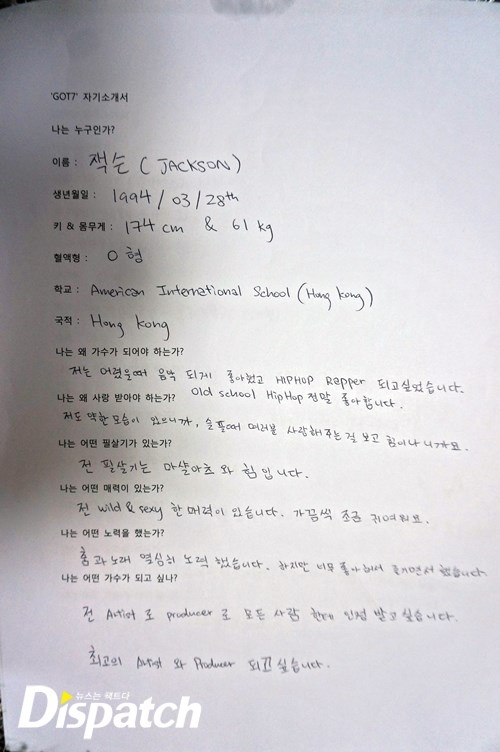 'GOT7' 자기소개서
나는 누구인가?
이름 : 잭슨 (JACKSON)
생년월일 : 1994 / 03 / 28th
키 & 몸무게 : 174 cm & 61 kg
혈액형 : O 형
학교 : American International School (Hong Kong)
국적 : Hong Kong
나는 왜 가수가 되어야 하는가?
저는 어렸을때 음악 되게 좋아했고 HIPHOP Rapper 되고싶었습니다.
Old school HipHop 정말 좋아합니다.
나는 왜 사랑 받아야 하는가?
저도 약한 모습이 있으니까, 슬플때 여러분 사랑해주는걸 보고 힘이나니까요.
나는 어떤 필살기가 있는가?
전 필살기는 마샬아츠 와 힘 입니다.
나는 어떤 매력이 있는가?
전 wild & sexy 한 매력이 있습니다. 가끔씩 조금 귀여워요.
나는 어떤 노력을 했는가?
춤과 노래 열심히 노력 했습니다. 하지만 너무 좋아해서 즐기면서 했습니다
나는 어떤 가수가 되고 싶나?
전 Artist 로 producer 로 모든 사람 한테 인정 받고 싶습니다.
최고의 Artist 와 Producer 되고 싶습니다.
뉴스는 팩트다
Dispatch